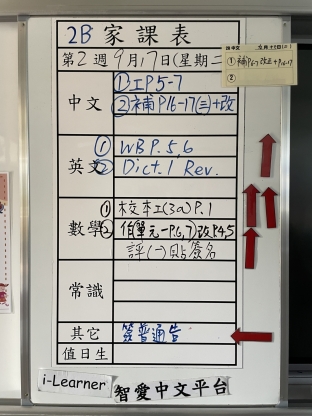 2B 家課表
第2週 9月17日(星期二
中文
①工P5-7
②補P16-17(三)+改
英文
① WB P.5,6
② Dict.1 Rev.
數學
① 校本工(3a)P.1
② 作單元一P.6,7)改P.4,5
評(一)貼簽名
常識
其它
簽普通告
值日生
i-Learner 智愛中文平台
①補P6-7改正+P16-17
②